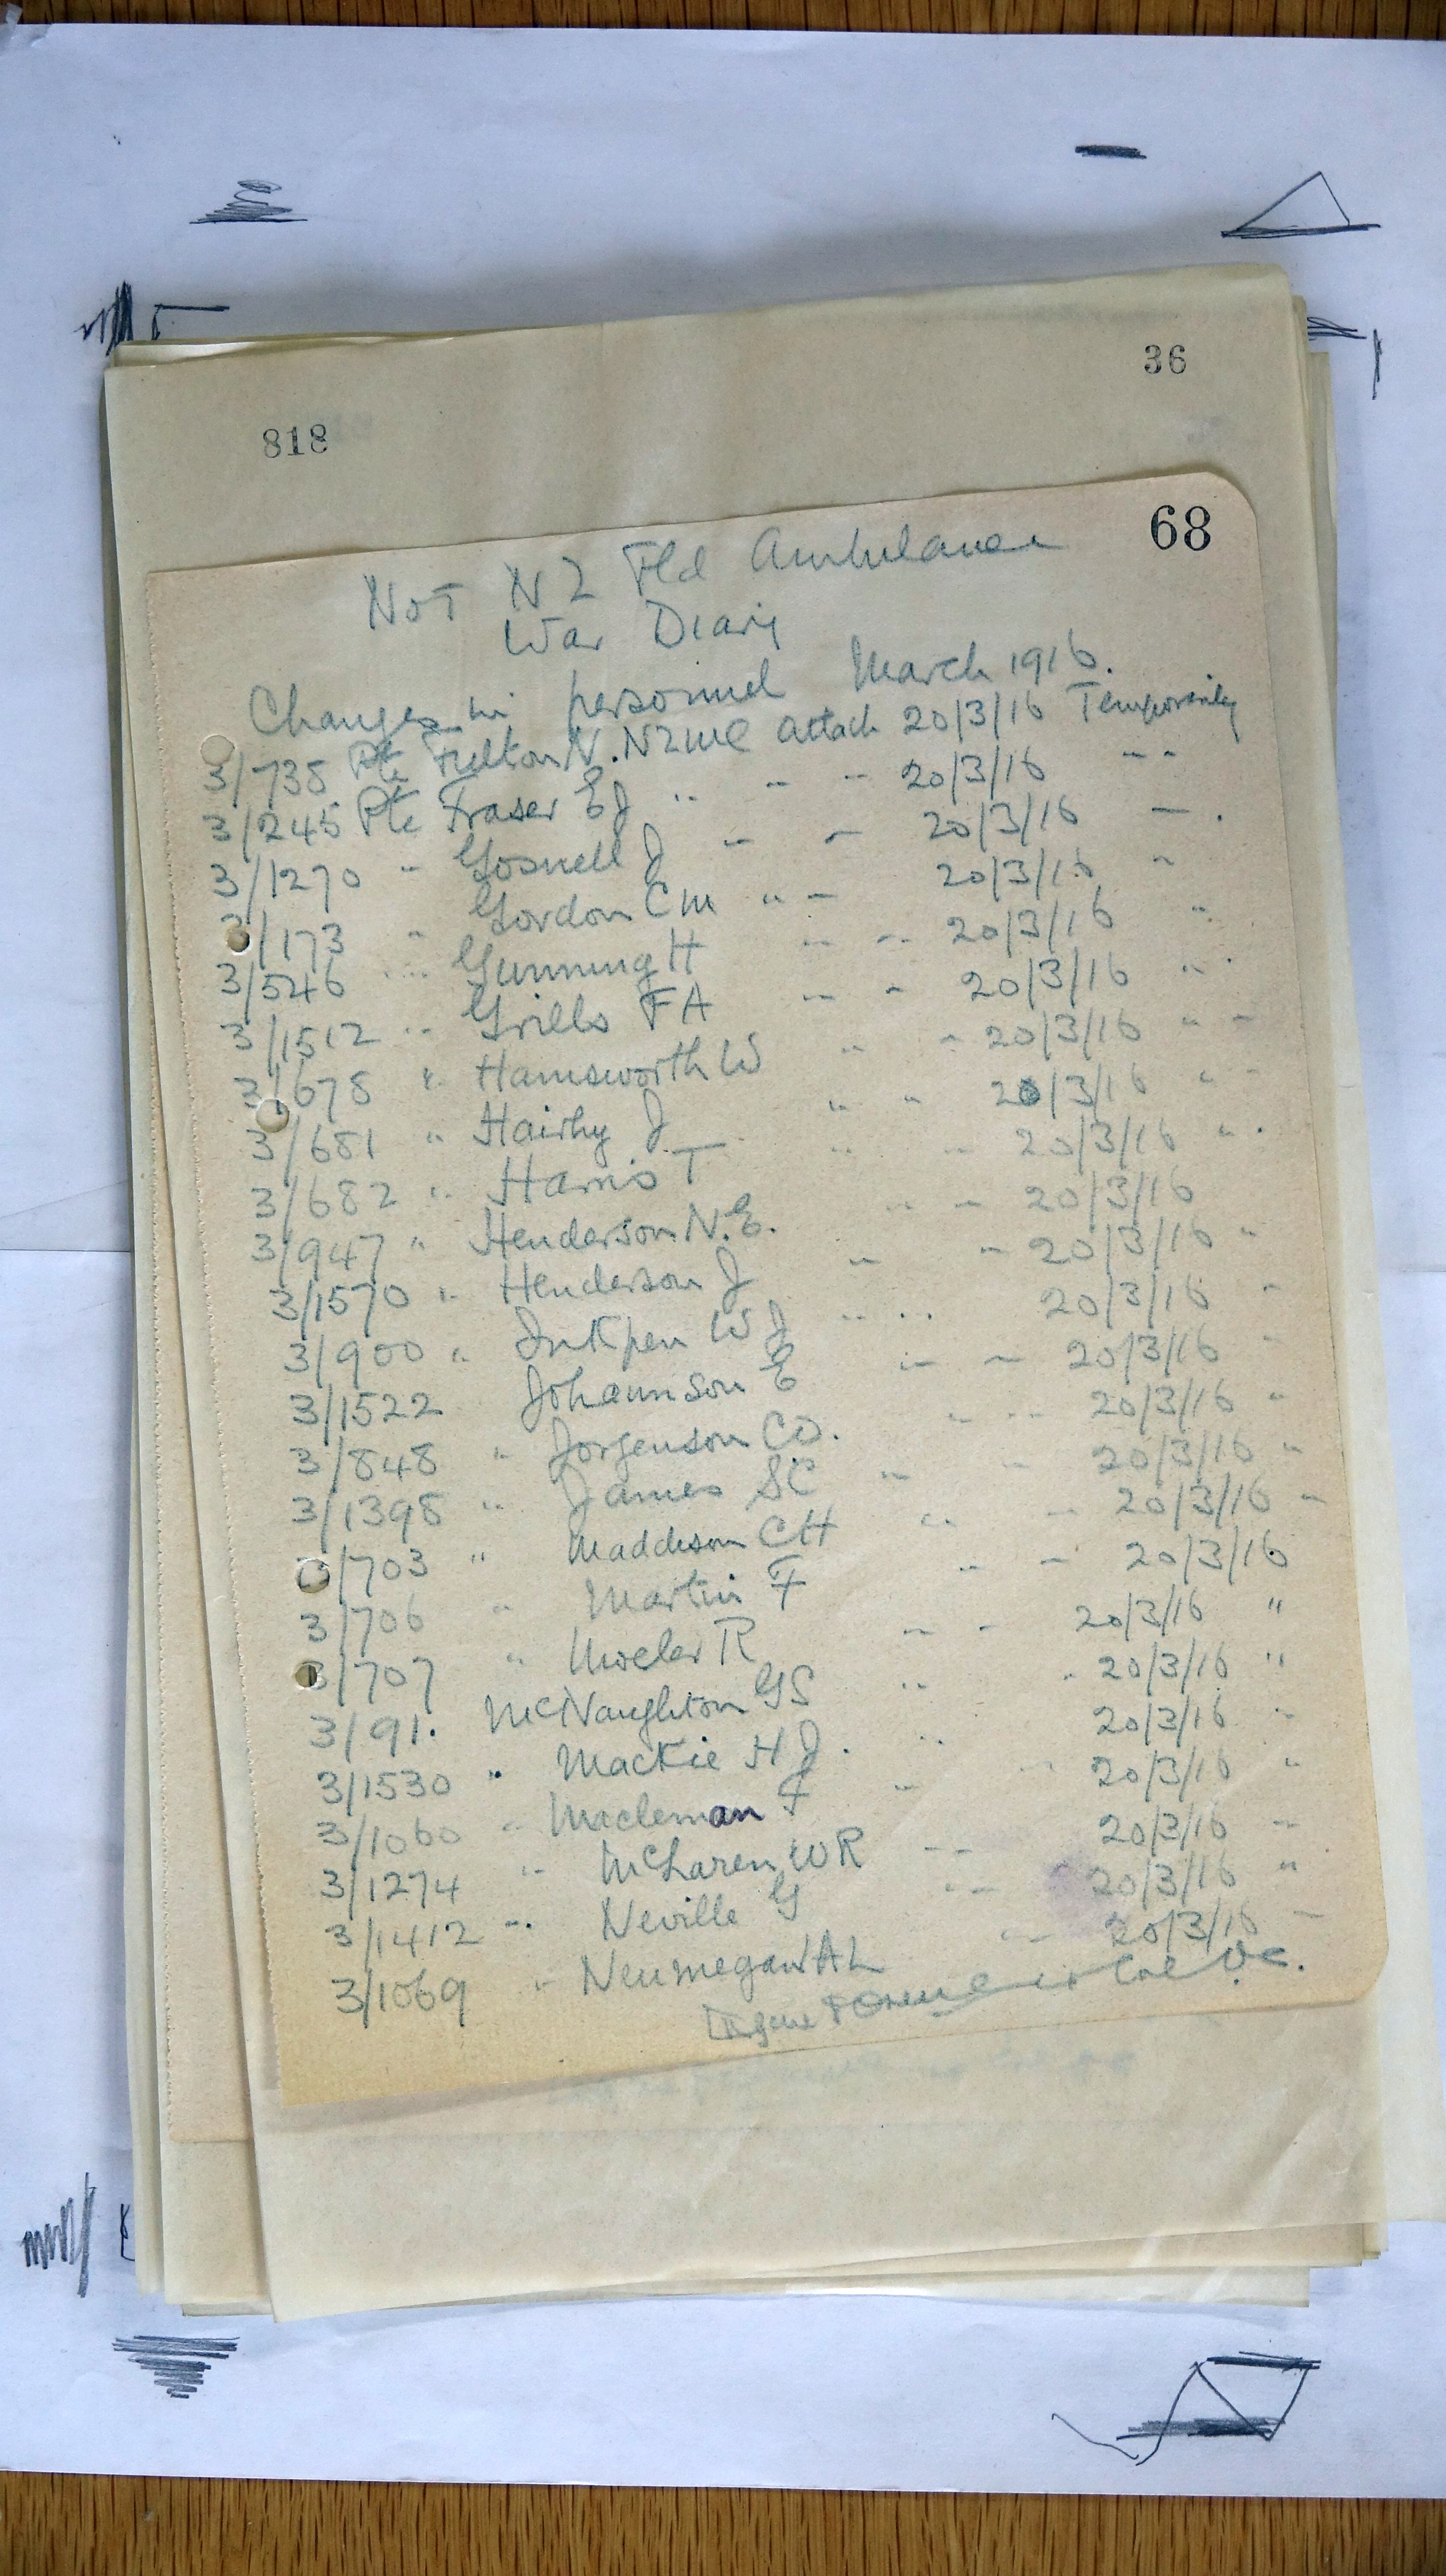 36
818
68
No 1 N Z Fld Ambulance
War Diary
Changes in personnel March 1916.
3/735 Pte Fulton N. NZMC attach 20/3/16 Temporarily
3/245 Pte Fraser E J " " " 20/3/16 " "
3/1270 " Gosnell J " " 20/3/16 "
3/173 " Gordon C M " " 20/3/16 "
3/546 " Gunning H " " 20/3/16 "
3/1512 " Grills F A " " 20/3/16 "
3/678 " Hamsworth W " " 20/3/16 " "
3/681 " Hairhy J " " 20/3/16 " "
3/682 " Harris T " " 20/3/16 "
3/947 " Henderson N.E. " " 20/3/16
3/1570 " Henderson J " " 20/3/16 "
3/900 " Inkpen W J " " 20/3/16 "
3/1522 Johannson E " " 20/3/16 "
3/848 " Jorgenson C O. " " 20/3/16 "
3/1398 " James S C " " 20/3/16 "
3/703 " Maddison C H " " 20/3/16 "
3/706 " Martin F " " 20/3/16
3/707 " R " " 20/3/16 "
3/91. McNaughton G S " " 20/3/16 "
3/1530 " Mackie H J. " 20/3/16 "
3/1060 " F " 20/3/16 "
3/1274 " McLaren W R " 20/3/16 "
3/1412 " Neville G " 20/3/16 "
3/1069 " Neumegan A L " 20/3/16 "